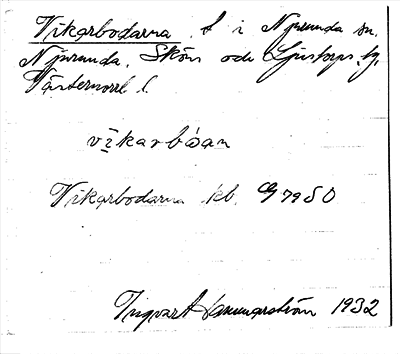 Vikarbodarna t. i Njurunda sn.
Njurunda, Sköns och Ljustorps tg.
Västernorrl. l.
vīkarbώan
Vikarbodarna kb. 79 SO
Ingvart Hammarström 1932